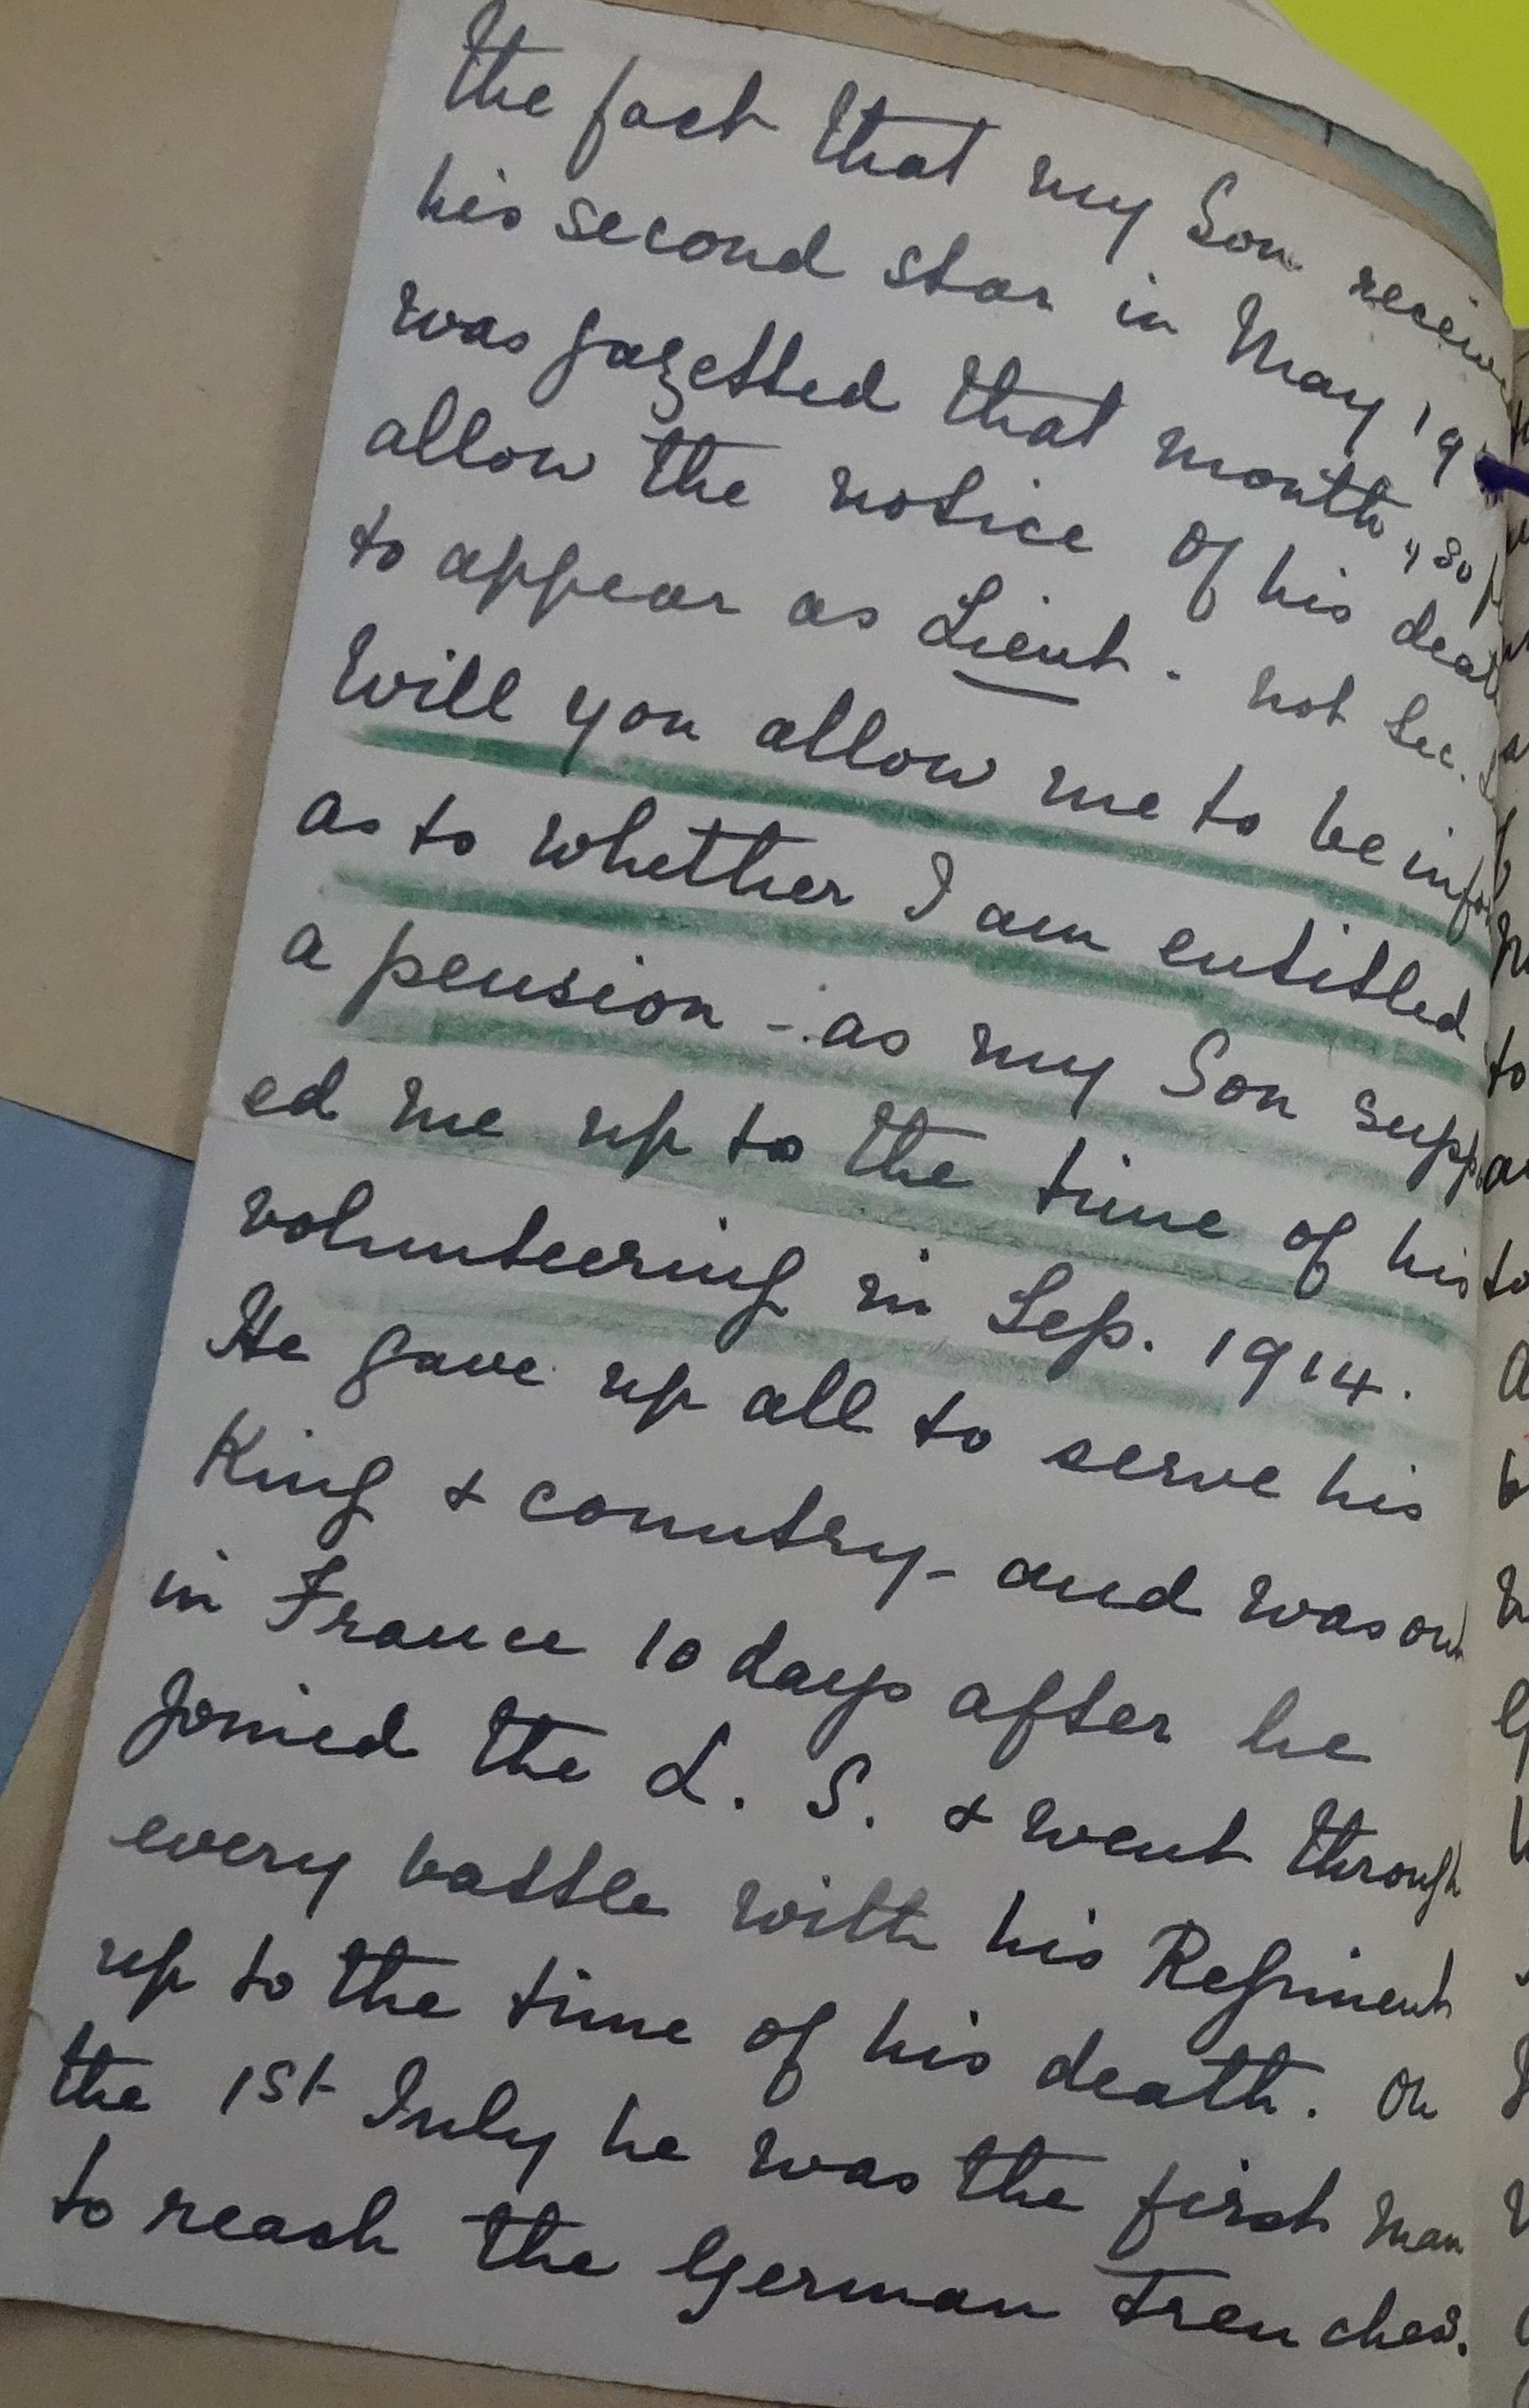 the fact that my Son receive
his second star in May 19
was gazetted that month, & so
allow the notice of his deat
to appear as Lieut. not Sec.
Will you allow me to be info
as to whether I am entitled
a pension - as my Son supp
ed me up to the time of his
volunteering in Sep. 1914.
He gave up all to serve his
King & country - and was out
in France 10 days after he
joined the L. S. & went through
every battle with his Regiment
up to the time of his death. On
the 1st July he was the first man
to reach the German Trenches.